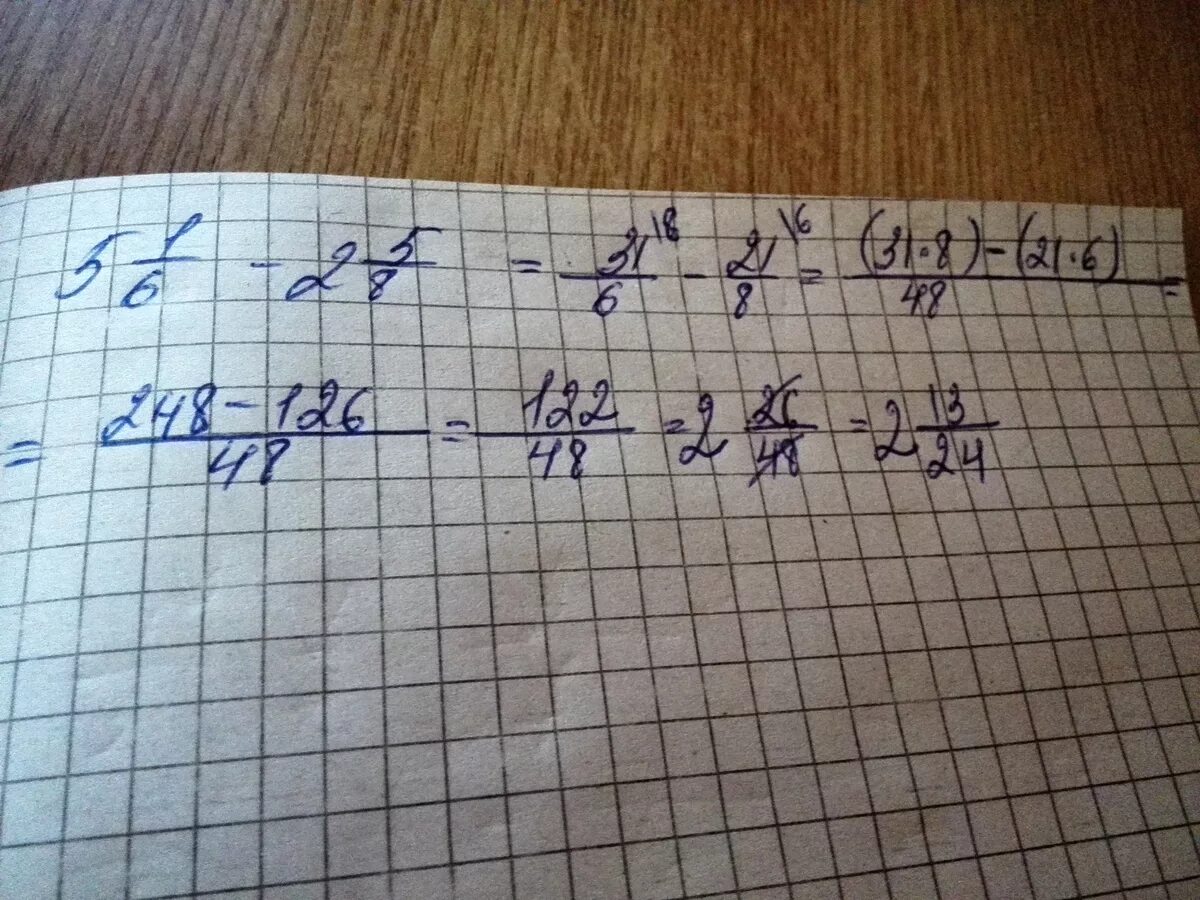 5 1/6 - 2 5/8 = 31\8/6 - 21\6/8 = (31·8)-(21·6)/48 =
= 248-126/48 = 122/48 = 2 26/48 = 2 13/24